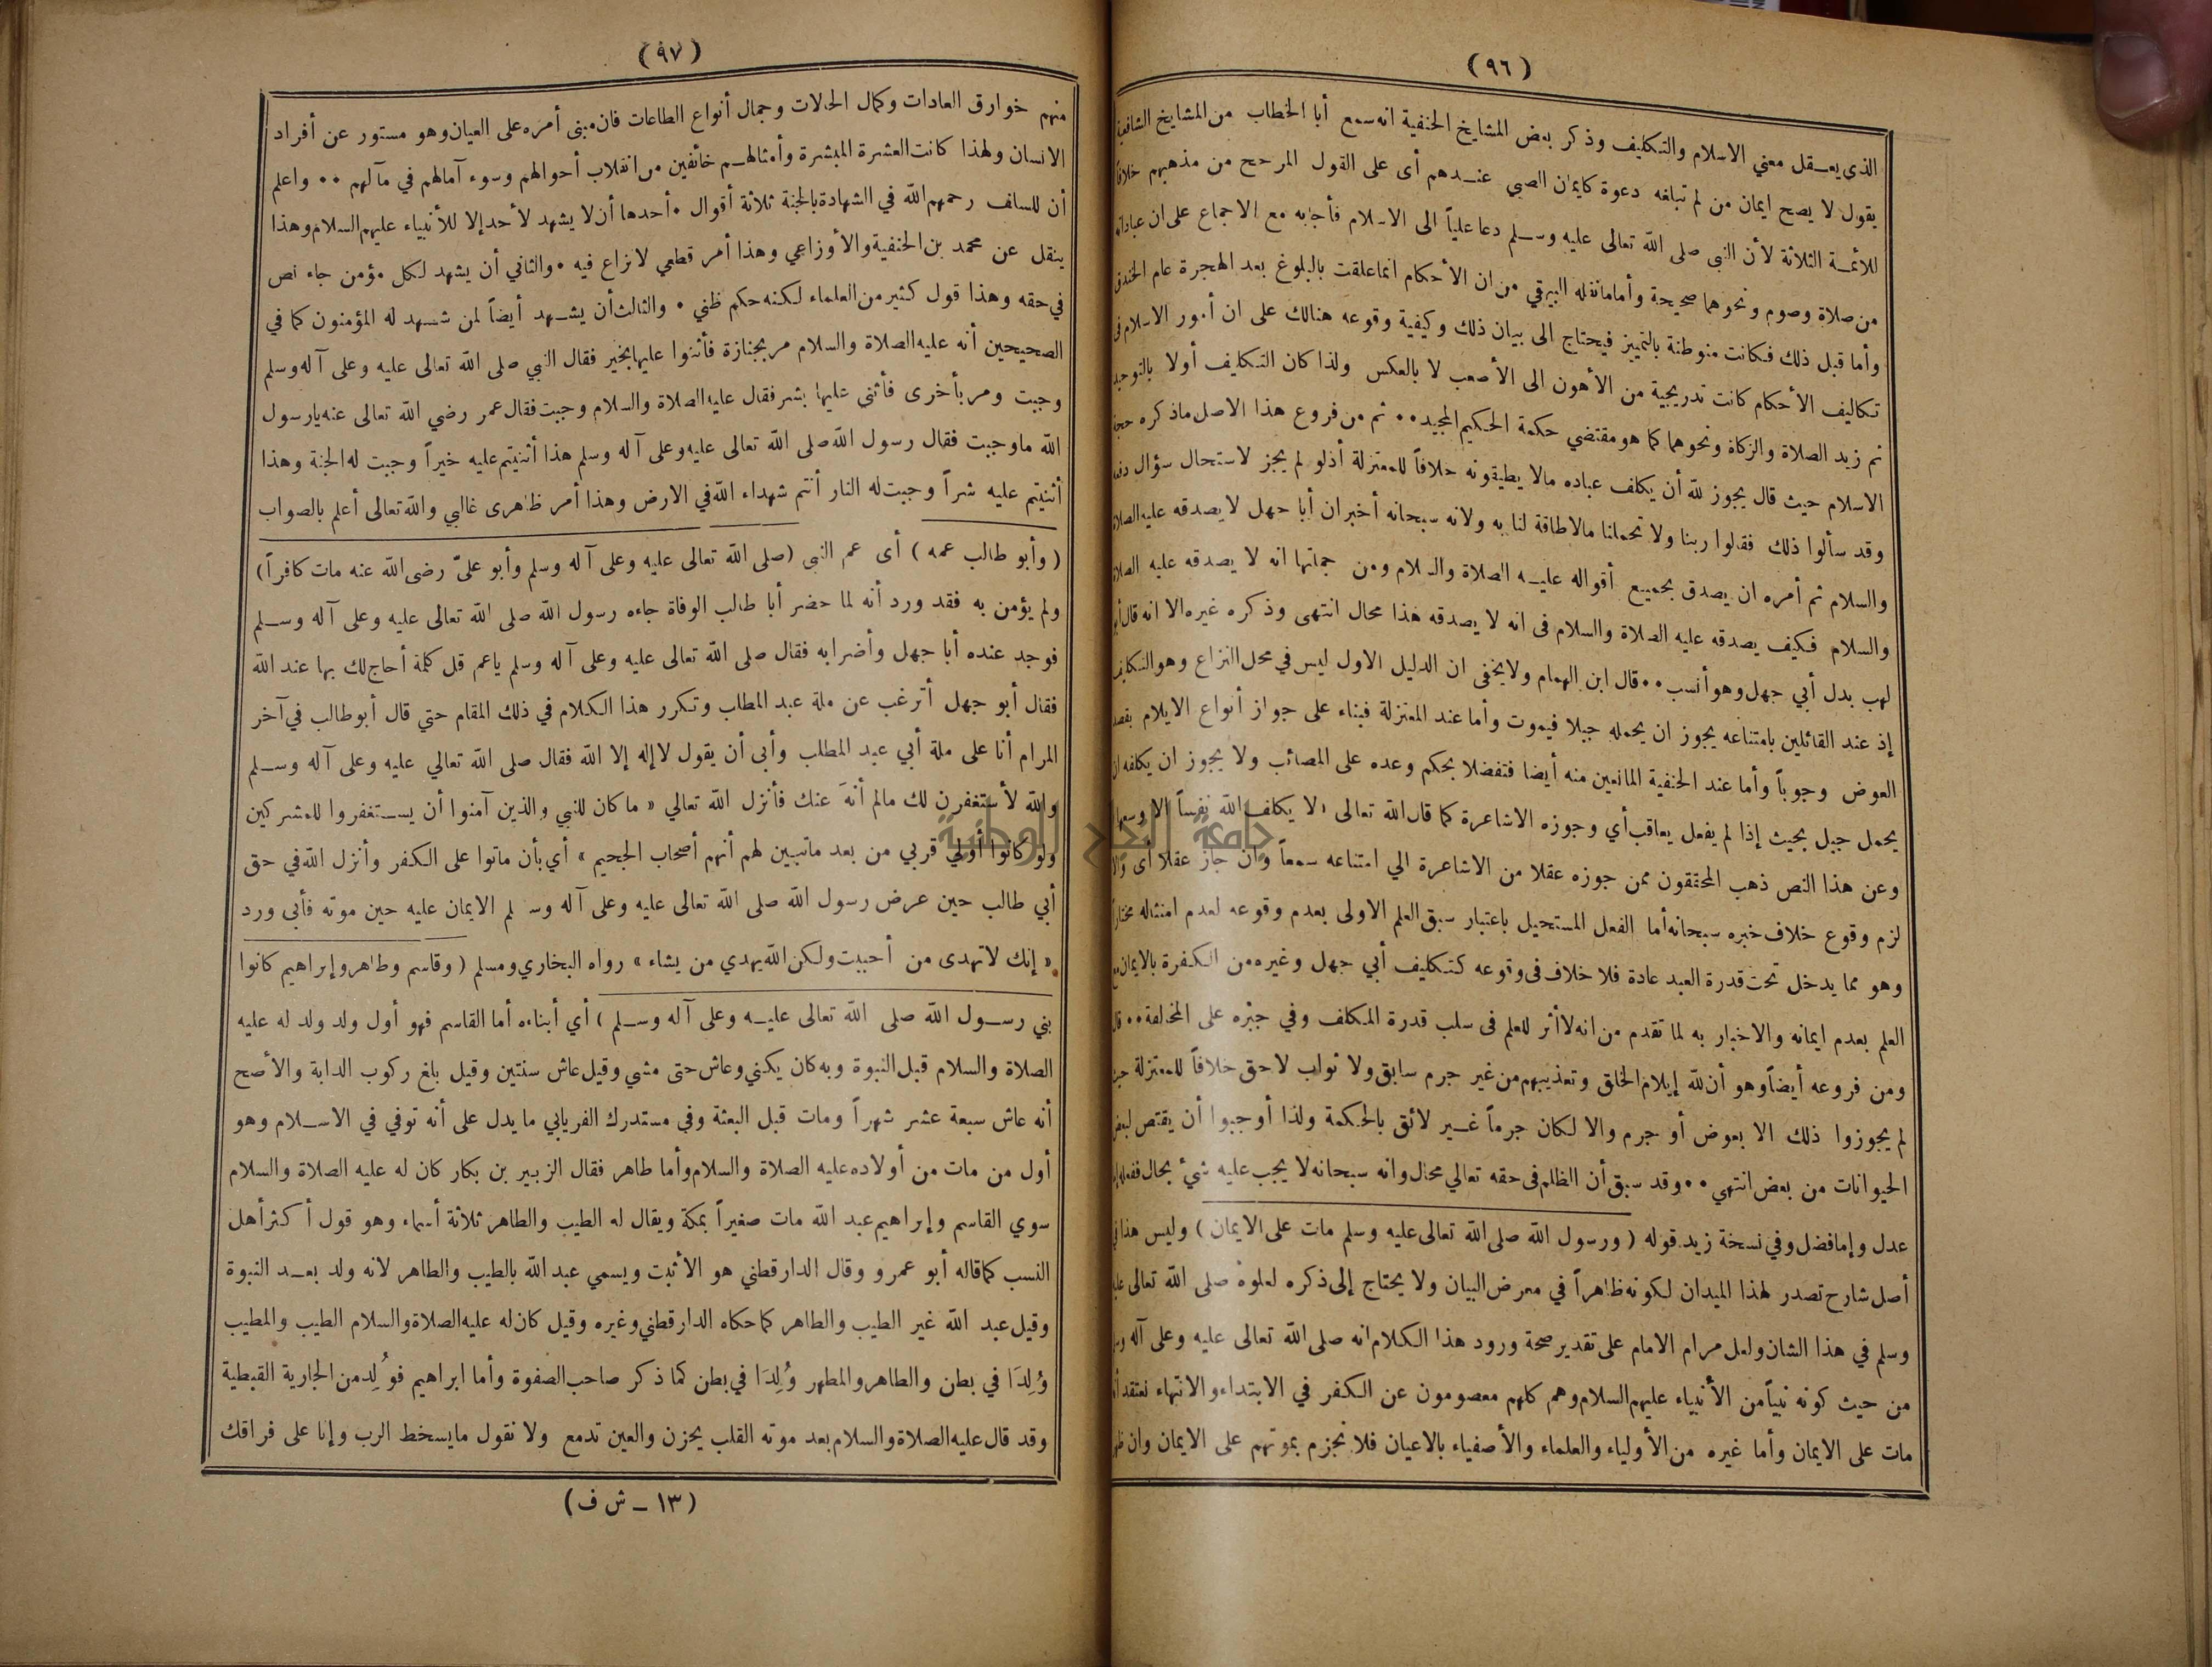 (٩٦)
الذي يعقل معني الاسلام والتكليف وذكر بعض المشايخ الحنفية انه سمع أبا الخطاب من المشايخ الشافعية
يقول لا يصح ايمان من لم تبلغه دعوة كايمان الصبي عندهم أى على القول المرجح من مذهبهم خلافاً
للائمة الثلاثة لأن النبي صلى الله تعالى عليه وسلم دعا علياً الى الاسلام فأجابه مع الاجماع على ان عباداته
من صلاة وصوم ونحوهما صحيحة وأما مانقله البيهقي من ان الأحكام انما علقت بالبلوغ بعد الهجرة عام الخندق
وأما قبل ذلك فكانت منوطنة بالتمييز فيحتاج الى بيان ذلك وكيفية وقوعه هنالك على ان أمور الاسلام فى
تكاليف الأحكام كانت تدريجية من الأهون الى الأصعب لا بالعكس ولذا كان التكليف أولا بالتوحيد
ثم زيد الصلاة والزكاة ونحوهما كما هو مقتضي حكمة الحكيم المجيد •• ثم من فروع هذا الاصل ماذكره حجة
الاسلام حيث قال يجوز لله أن يكلف عباده مالا يطيقونه خلافاً للمعتزلة أذلو لم يجز لاستحال سؤال دفعه
وقد سألوا ذلك فقالوا ربنا ولا تحملنا مالاطاقة لنا به ولانه سبحانه أخبر ان أبا جهل لا يصدقه عليه الصلاة
والسلام ثم أمره ان يصدق بجميع أقواله عليه الصلاة والسلام ومن جملتها انه لا يصدقه عليه الصلاة
والسلام فكيف يصدقه عليه الصلاة والسلام فى انه لا يصدقه هذا محال انتهى وذكره غيره الا انه قال أبو
لهب بدل أبي جهل وهو أنسب •• قال ابن الهمام ولايخفى ان الدليل الاول ليس في محل النزاع وهو التكليف
إذ عند القائلين بامتناعه يجوز ان يحمله جبلا فيموت وأما عند المعتزلة فبناء على جواز أنواع الايلام بقصد
العوض وجوباً وأما عند الحنفية المانعين منه أيضا فتفضلا بحكم وعده على المصائب ولا يجوز ان يكلفه ان
يحمل جبل بحيث إذا لم يفعل يعاقب أي وجوزه الاشاعرة كما قال الله تعالى لا يكلف الله نفساً الا وسعها
وعن هذا النص ذهب المحققون ممن جوزه عقلا من الاشاعرة الي امتناعه سمعاً وان جاز عقلا أى والا
لزم وقوع خلاف خبره سبحانه أما الفعل المستحيل باعتبار سبق العلم الاولى بعدم وقوعه لعدم امتثاله مختاراً
وهو مما يدخل تحت قدرة العبد عادة فلا خلاف فى وقوعه كتكليف أبي جهل وغيره من الكفرة بالايمان مع
العلم بعدم ايمانه والاخبار به لما تقدم من انه لاأثر للعلم فى سلب قدرة المكلف وفي جبره على المخالفة ••
ومن فروعه أيضاً وهو أن لله إيلام الخلق وتعذيبهم من غير جرم سابق ولا ثواب لاحق خلافاً للمعتزلة حيث
لم يجوزوا ذلك الا بعوض أو جرم والا لكان جرماً غير لائق بالحكمة ولذا أوجبوا أن يقتص لبعض
الحيوانات من بعض انتهي •• وقد سبق أن الظلم فى حقه تعالي محال وانه سبحانه لا يجب عليه شيء بحال ففعله إما
عدل وإما فضل وفي نسخة زيد قوله (ورسول الله صلى الله تعالى عليه وسلم مات على الايمان) وليس هذا في
أصل شارح تصدر لهذا الميدان لكونه ظاهراً في معرض البيان ولا يحتاج إلى ذكره لعلوه صلى الله تعالى عليه
وسلم في هذا الشان ولعل مرام الامام على تقدير صحة ورود هذا الكلام انه صلى الله تعالى عليه وعلى آله وسلم
من حيث كونه نبياً من الأنبياء عليهم السلام وهم كلهم معصومون عن الكفر في الابتداء والانتهاء نعتقد أنه
مات على الايمان وأما غيره من الأولياء والعلماء والأصفياء بالاعيان فلا نجزم بموتهم على الايمان وان ظهر
(٩٧)
منهم خوارق العادات وكمال الحالات وجمال أنواع الطاعات فان مبنى أمره على العيان وهو مستور عن أفراد
الانسان ولهذا كانت العشرة المبشرة وأمثالهم خائفين من انقلاب أحوالهم وسوء آمالهم في مآلهم •• واعلم
أن للسلف رحمهم الله في الشهادة بالجنة ثلاثة أقوال • أحدها أن لا يشهد لأحد إلا للأنبياء عليهم السلام وهذا
ينقل عن محمد بن الحنفية والأوزاعي وهذا أمر قطعي لانزاع فيه • والثاني أن يشهد لكل مؤمن جاء نص
في حقه وهذا قول كثير من العلماء لكنه حكم ظني • والثالث أن يشهد أيضاً لمن شهد له المؤمنون كما في
الصحيحين أنه عليه الصلاة والسلام مر بجنازة فأثنوا عليها بخير فقال النبي صلى الله تعالى عليه وعلى آله وسلم
وجبت ومر بأخرى فأثنى عليها بشر فقال عليه الصلاة والسلام وجبت فقال عمر رضي الله تعالى عنه يارسول
الله ماوجبت فقال رسول الله صلى الله تعالى عليه وعلى آله وسلم هذا أثنيتم عليه خيراً وجبت له الجنة وهذا
أثنيتم عليه شراً وجبت له النار أنتم شهداء الله في الارض وهذا أمر ظاهرى غالبي والله تعالى أعلم بالصواب
(وأبو طالب عمه) أى عم النبي (صلى الله تعالى عليه وعلى آله وسلم وأبو علىّ رضى الله عنه مات كافراً)
ولم يؤمن به فقد ورد أنه لما حضر أبا طالب الوفاة جاءه رسول الله صلى الله تعالى عليه وعلى آله وسلم
فوجد عنده أبا جهل وأضرابه فقال صلى الله تعالى عليه وعلى آله وسلم ياعم قل كلمة أحاج لك بها عند الله
فقال أبو جهل أترغب عن ملة عبد المطلب وتكرر هذا الكلام في ذلك المقام حتي قال أبو طالب في آخر
المرام أنا على ملة أبي عبد المطلب وأبى أن يقول لاإله إلا الله فقال صلى الله تعالي عليه وعلى آله وسلم
والله لأستغفرن لك مالم أنهَ عنك فأنزل الله تعالي « ماكان للنبي والذين آمنوا أن يستغفروا للمشركين
ولو كانوا أولي قربي من بعد ماتبين لهم أنهم أصحاب الجحيم » أي بأن ماتوا على الكفر وأنزل الله في حق
أبي طالب حين عرض رسول الله صلى الله تعالى عليه وعلى آله وسلم الايمان عليه حين موته فأبى ورد
« إنك لاتهدى من أحببت ولكن الله يهدي من يشاء » رواه البخاري ومسلم (وقاسم وطاهر وإبراهيم كانوا
بني رسول الله صلى الله تعالى عليه وعلى آله وسلم) أي أبناءه أما القاسم فهو أول ولد ولد له عليه
الصلاة والسلام قبل النبوة وبه كان يكنى وعاش حتى مشي وقيل عاش سنتين وقيل بلغ ركوب الدابة والأصح
أنه عاش سبعة عشر شهراً ومات قبل البعثة وفي مستدرك الفريابي مايدل على أنه توفي في الاسلام وهو
أول من مات من أولاده عليه الصلاة والسلام وأما طاهر فقال الزبير بن بكار كان له عليه الصلاة والسلام
سوي القاسم وإبراهيم عبد الله مات صغيراً بمكة ويقال له الطيب والطاهر ثلاثة أسماء وهو قول أكثر أهل
النسب كما قاله أبو عمرو وقال الدارقطني هو الأثبت ويسمي عبد الله بالطيب والطاهر لانه ولد بعد النبوة
وقيل عبد الله غير الطيب والطاهر كما حكاه الدارقطني وغيره وقيل كان له عليه الصلاة والسلام الطيب والمطيب
وُلِدَا في بطن والطاهر والمطهر وُلِدَا في بطن كما ذكر صاحب الصفوة وأما ابراهيم فوُلِد من الجارية القبطية
وقد قال عليه الصلاة والسلام بعد موته القلب يحزن والعين تدمع ولا نقول مايسخط الرب وإنا على فراقك
(١٣ – ش ف)
جامعة النجاح الوطنية